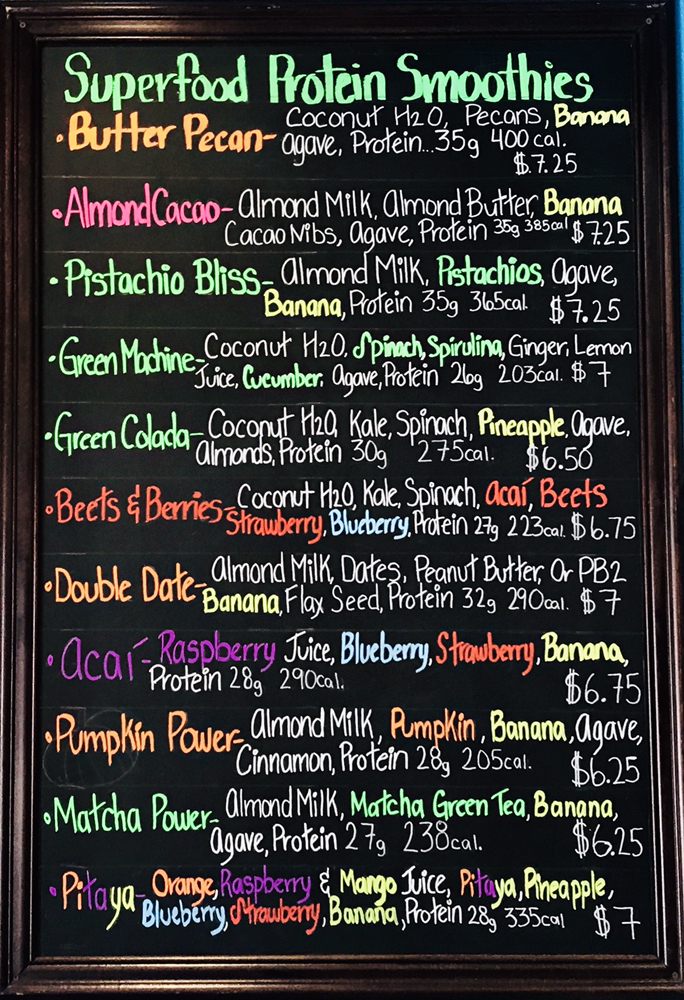 Superfood Protein Smoothies
•Butter Pecan- Coconut H2O, Pecans, Banana
agave, Protein...35g 400 cal.
$7.25
•Almond Cacao- Almond Milk, Almond Butter, Banana
Cacao Nibs, Agave, Protein 35g 385cal $7.25
•Pistachio Bliss- Almond Milk, Pistachios, Agave,
Banana, Protein 35g 365cal. $7.25
•Green Machine- Coconut H2O, Spinach, Spirulina, Ginger, Lemon
Juice, Cucumber, Agave, Protein 26g 203cal. $7
•Green Colada- Coconut H2O, Kale, Spinach, Pineapple, Agave,
Almonds, Protein 30g 275cal. $6.50
•Beets & Berries- Coconut H2O, Kale, Spinach, Acaí, Beets
Strawberry, Blueberry, Protein 27g 223cal. $6.75
•Double Date- Almond Milk, Dates, Peanut Butter, Or PB2
Banana, Flax Seed, Protein 32g 290cal. $7
•Acaí- Raspberry Juice, Blueberry, Strawberry, Banana,
Protein 28g 290cal.
$6.75
•Pumpkin Power- Almond Milk, Pumpkin, Banana, Agave,
Cinnamon, Protein 28g 205cal. $6.25
•Matcha Power- Almond Milk, Matcha Green Tea, Banana,
Agave, Protein 27g 238cal. $6.25
•Pitaya- Orange, Raspberry & Mango Juice, Pitaya, Pineapple,
Blueberry, Strawberry, Banana, Protein 28g 335cal $7